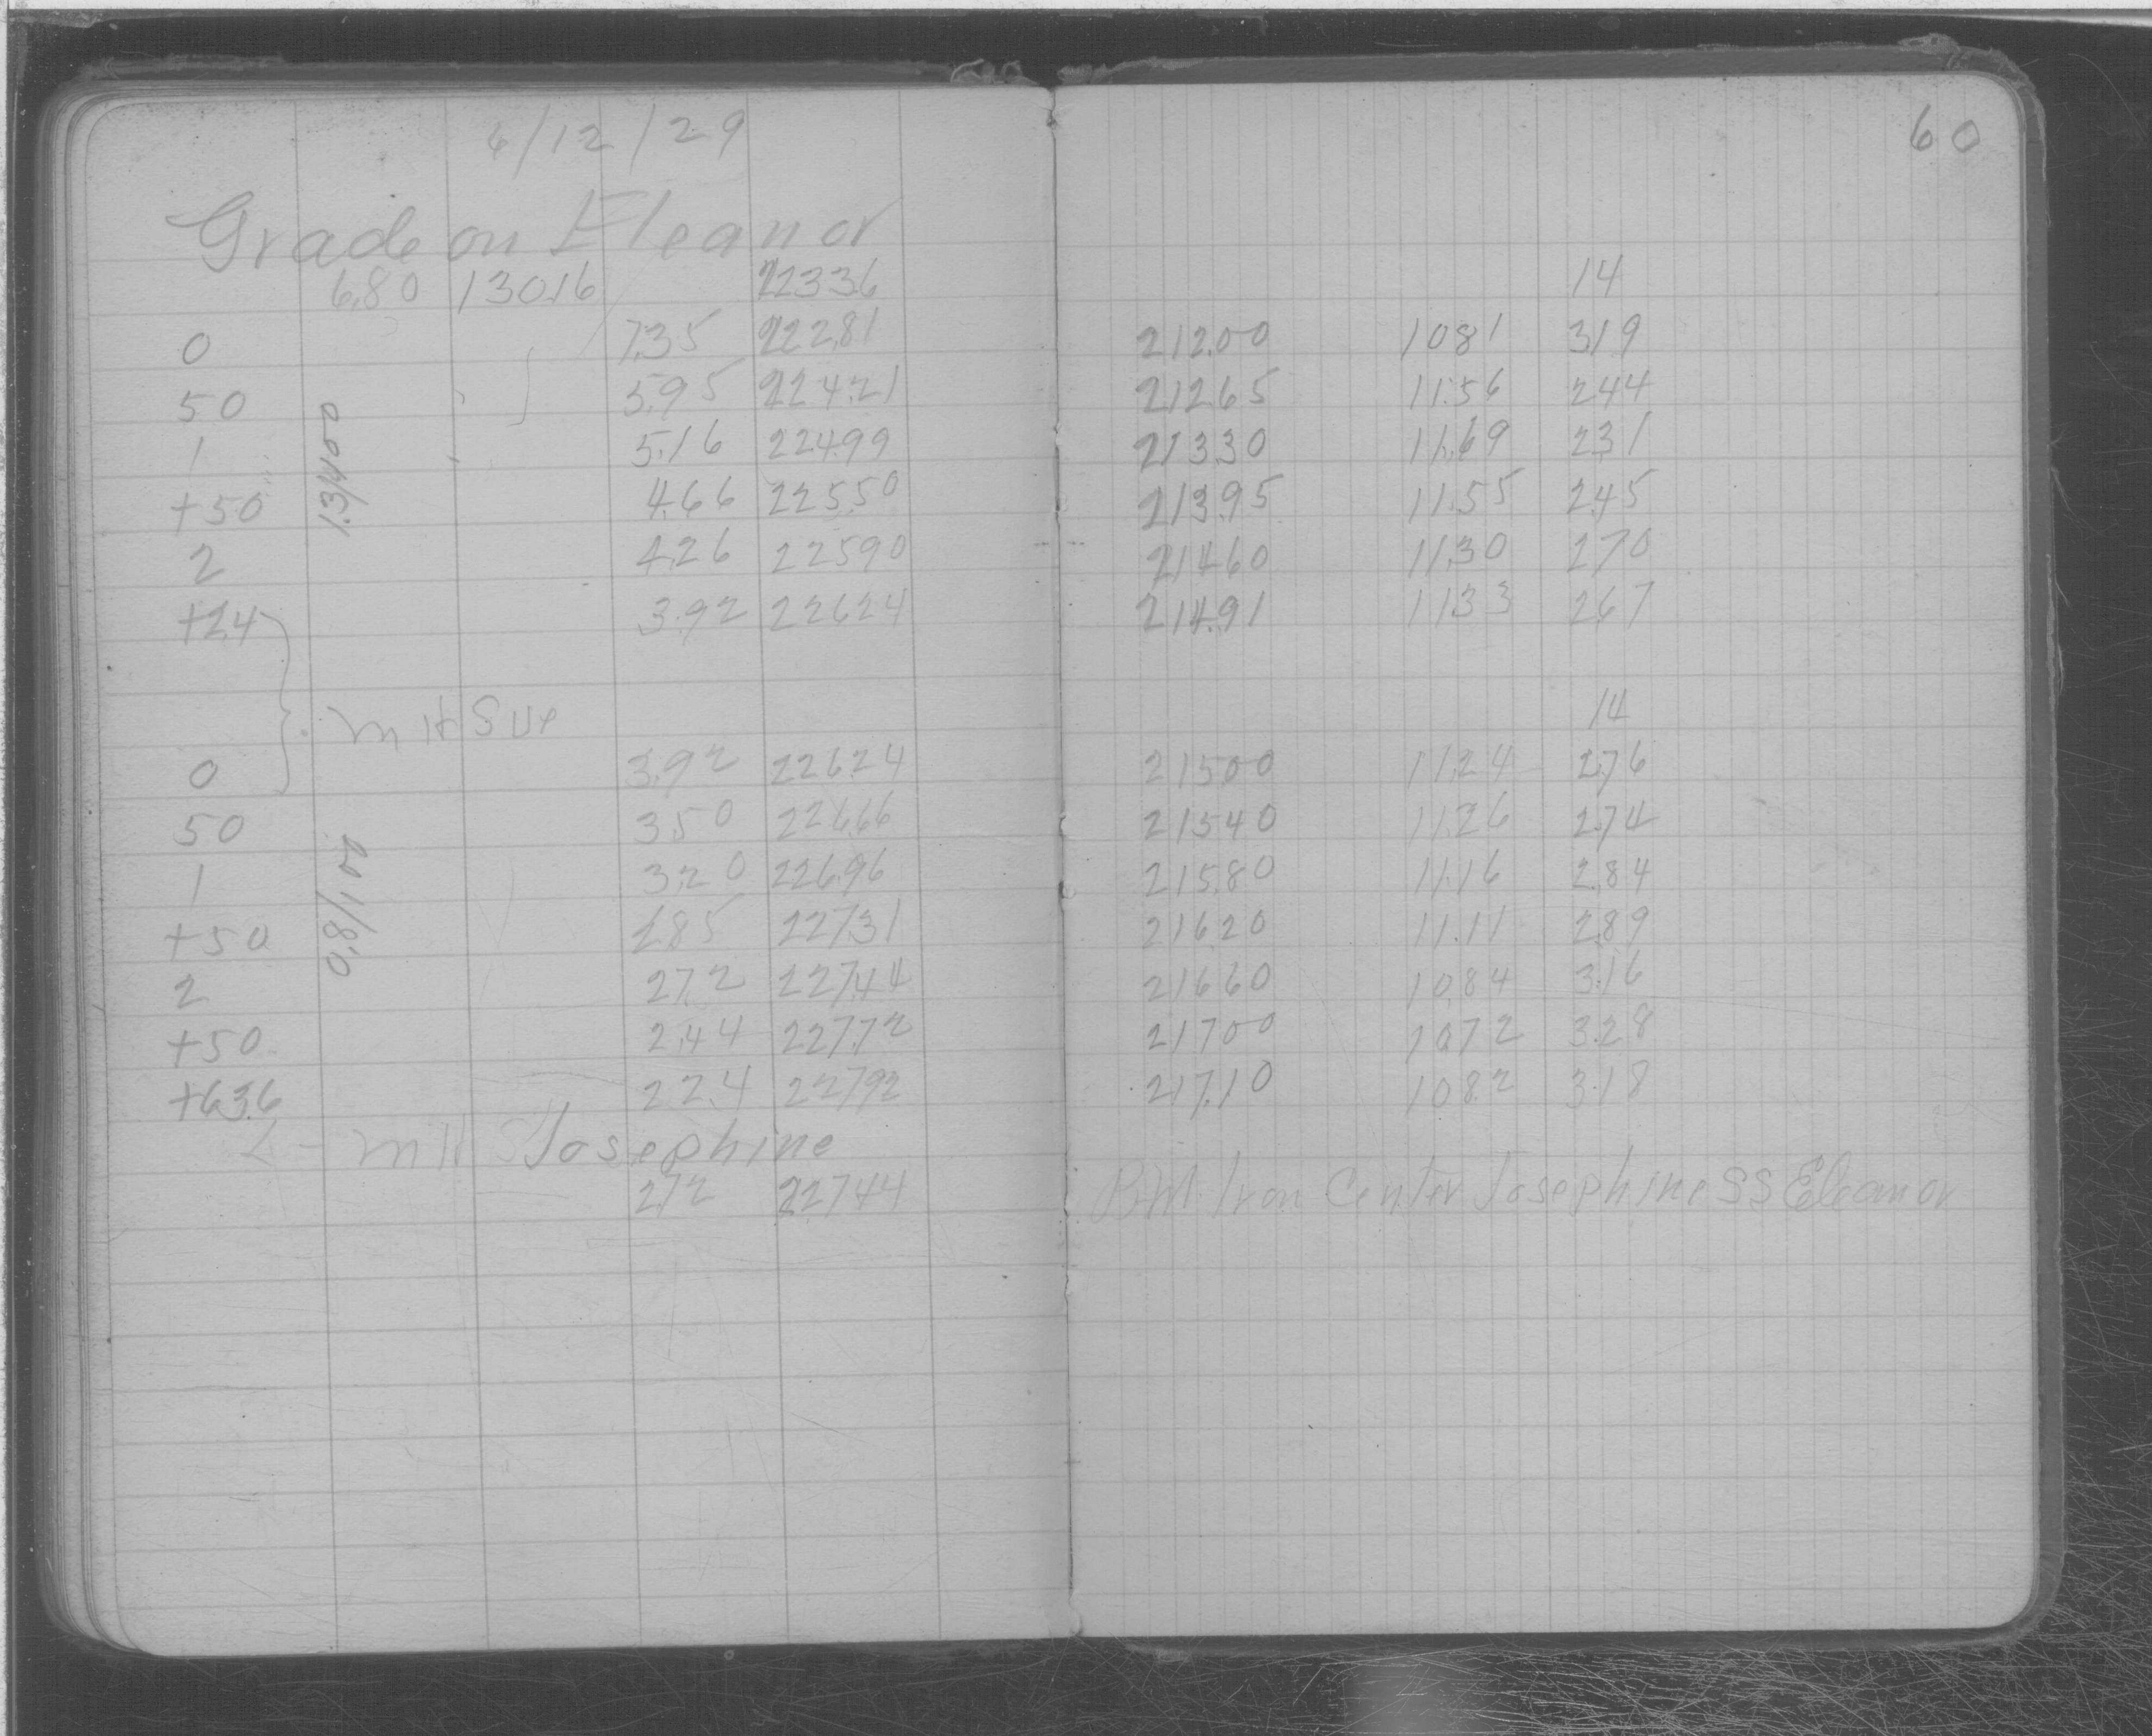 6/12/29
60
Grade on Eleanor
6.80 130.16 223.36 14
0 7.35 222.81 212.00 10.81 319
50 5.95 224.21 212.65 11.56 244
1 5.16 224.99 213.30 11.69 231
+50 4.66 225.50 213.95 11.55 245
2 4.26 225.90 214.60 11.30 270
+24 3.92 226.24 214.91 11.33 267
1.3/100
MH Sue 14
0 3.92 226.24 215.00 11.24 2.76
50 3.50 226.66 215.40 11.26 2.74
1 3.20 226.96 215.80 11.16 2.84
+50 2.85 227.31 216.20 11.11 2.89
2 2.72 227.44 216.60 10.84 3.16
+50 2.44 227.72 217.00 10.72 3.28
+63.6 2.24 227.92 217.10 10.82 3.18
0.8/100
MH Josephine
2.72 227.44 BM. Iron Center Josephine SS Eleanor